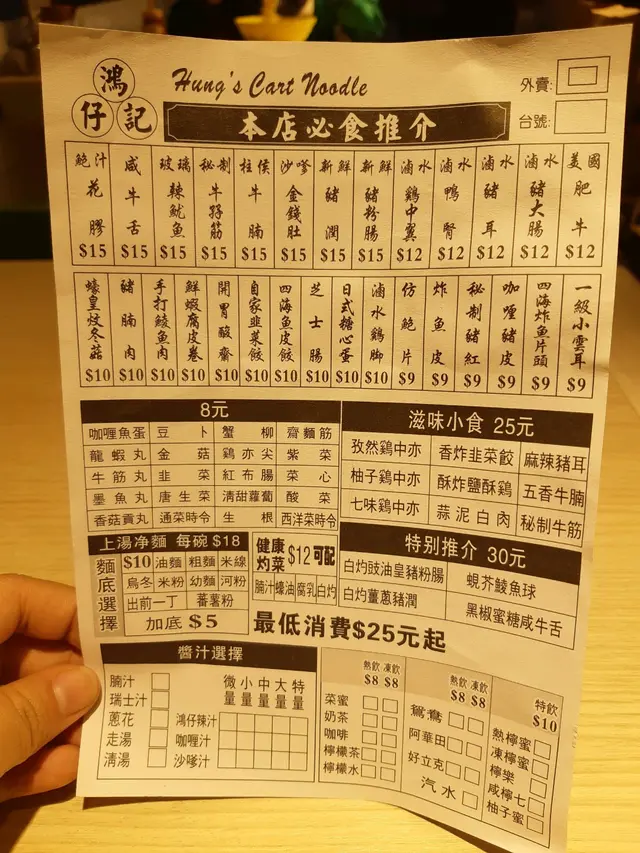 鴻仔記
Hung's Cart Noodle
外賣:
台號:
本店必食推介
鮑汁花膠 $15
咸牛舌 $15
玻璃辣魷魚 $15
秘制牛孖筋 $15
柱侯牛腩 $15
沙嗲金錢肚 $15
新鮮豬潤 $15
新鮮豬粉腸 $15
滷水鷄中翼 $12
滷水鴨腎 $12
滷水豬耳 $12
滷水豬大腸 $12
美國肥牛 $12
蠔皇炆冬菇 $10
豬腩肉 $10
手打鯪魚肉 $10
鮮蝦腐皮卷 $10
開胃酸齋 $10
自家韭菜餃 $10
四海魚皮餃 $10
芝士腸 $10
日式糖心蛋 $10
滷水鷄脚 $10
仿鮑片 $9
炸魚皮 $9
秘制豬紅 $9
咖喱豬皮 $9
四海炸魚片頭 $9
一級小雲耳 $9
8元
咖喱魚蛋 豆卜 蟹柳 齋麵筋
龍蝦丸 金菇 鷄亦尖 紫菜
牛筋丸 韭菜 紅布腸 菜心
墨魚丸 唐生菜 清甜蘿蔔 酸菜
香菇貢丸 通菜時令 生根 西洋菜時令
滋味小食 25元
孜然鷄中亦 香炸韭菜餃 麻辣豬耳
柚子鷄中亦 酥炸鹽酥鷄 五香牛腩
七味鷄中亦 蒜泥白肉 秘制牛筋
上湯净麵 每碗 $18
麵底選擇
$10 油麵 粗麵 米線
烏冬 米粉 幼麵 河粉
出前一丁 蕃薯粉
加底 $5
健康灼菜 $12可配
腩汁 蠔油 腐乳 白灼
特別推介 30元
白灼豉油皇豬粉腸 蜆芥鯪魚球
白灼薑蔥豬潤 黑椒蜜糖咸牛舌
最低消費$25元起
醬汁選擇
腩汁
瑞士汁
蔥花
走湯
清湯
微量 小量 中量 大量 特量
鴻仔辣汁
咖喱汁
沙嗲汁
熱飲 $8 凍飲 $8
菜蜜
奶茶
咖啡
檸檬茶
檸檬水
熱飲 $8 凍飲 $8
鴛鴦
阿華田
好立克
汽水
特飲 $10
熱檸蜜
凍檸蜜
檸樂
咸檸七
柚子蜜